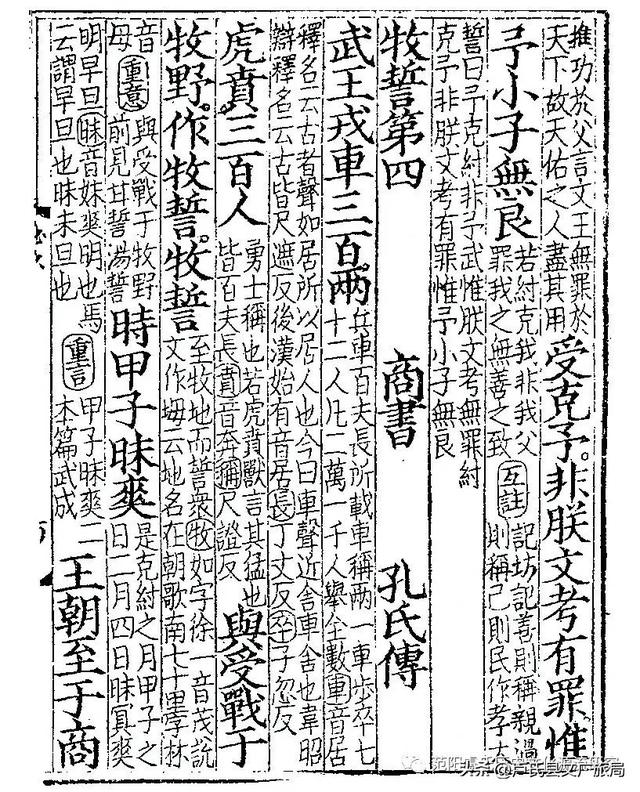 推功於父言文王無罪於
天下故天佑之人盡其用
受克予。非朕文考有罪。惟
予小子無良
若紂克我非我父
罪我之無善之致
互註
記坊記善則稱親過
則稱己則民作孝大
誓曰予克紂非予武惟朕文考無罪紂
克予非朕文考有罪惟予小子無良
牧誓第四 商書 孔氏傳
武王戎車三百兩
兵車百夫長所載車稱兩一車步卒七
十二人凡二萬一千人舉全數車音居
釋名云古者聲如居所以居人也今曰車聲近舍車舍也韋昭
辯釋名云古皆尺遮反後漢始有音居長丁丈反卒子忽反
虎賁三百人
勇士稱也若虎賁獸言其猛也
皆百夫長賁音奔稱尺證反
與受戰于
牧野。作牧誓。牧誓
至牧地而誓衆牧如字徐一音茂說
文作坶云地名在朝歌南七十里字林
音
母
重意
與受戰于牧野
前見甘誓湯誓
時甲子昧爽
是克紂之月甲子之
日二月四日昧冥爽
明早旦昧音妹爽明也馬
云謂早旦也昧未旦也
重言
甲子昧爽二
本篇武成
王朝至于商
头条@卢氏县文广旅局